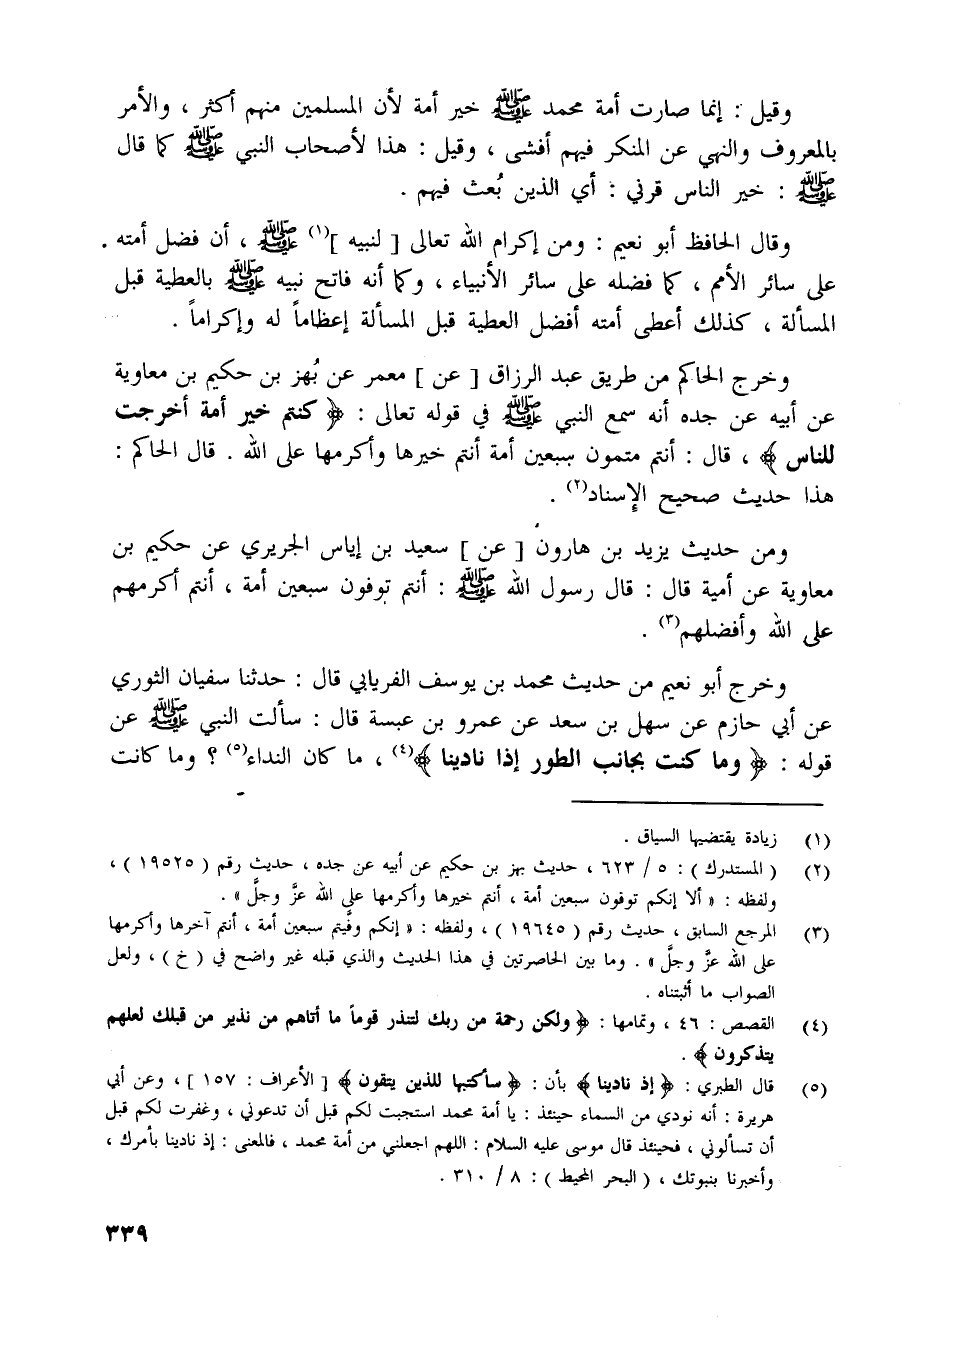 وقيل : إنما صارت أمة محمد ﷺ خير أمة لأن المسلمين منهم أكثر ، والأمر
بالمعروف والنهي عن المنكر فيهم أفشى ، وقيل : هذا لأصحاب النبي ﷺ كما قال
ﷺ : خير الناس قرني : أي الذين بُعث فيهم .
وقال الحافظ أبو نعيم : ومن إكرام الله تعالى [ لنبيه ](١) ﷺ ، أن فضل أمته .
على سائر الأمم ، كما فضله على سائر الأنبياء ، وكما أنه فاتح نبيه ﷺ بالعطية قبل
المسألة ، كذلك أعطى أمته أفضل العطية قبل المسألة إعظاماً له وإكراماً .
وخرج الحاكم من طريق عبد الرزاق [ عن ] معمر عن بُهز بن حكيم بن معاوية
عن أبيه عن جده أنه سمع النبي ﷺ في قوله تعالى : ﴿ كنتم خير أمة أخرجت
للناس ﴾ ، قال : أنتم متمون سبعين أمة أنتم خيرها وأكرمها على الله . قال الحاكم :
هذا حديث صحيح الإسناد(٢) .
ومن حديث يزيد بن هارون [ عن ] سعيد بن إياس الجريري عن حكيم بن
معاوية عن أمية قال : قال رسول الله ﷺ : أنتم توفون سبعين أمة ، أنتم أكرمهم
على الله وأفضلهم(٣) .
وخرج أبو نعيم من حديث محمد بن يوسف الفريابي قال : حدثنا سفيان الثوري
عن أبي حازم عن سهل بن سعد عن عمرو بن عبسة قال : سألت النبي ﷺ عن
قوله : ﴿ وما كنت بجانب الطور إذا نادينا ﴾(٤) ، ما كان النداء(٥) ؟ وما كانت
(١) زيادة يقتضيها السياق .
(٢) ( المستدرك ) : ٥ / ٦٢٣ ، حديث بهز بن حكيم عن أبيه عن جده ، حديث رقم ( ١٩٥٢٥ ) ،
ولفظه : « ألا إنكم توفون سبعين أمة ، أنتم خيرها وأكرمها على الله عزَّ وجلَّ » .
(٣) المرجع السابق ، حديث رقم ( ١٩٦٤٥ ) ، ولفظه : « إنكم وفَّيتم سبعين أمة ، أنتم آخرها وأكرمها
على الله عزَّ وجلَّ » . وما بين الحاصرتين في هذا الحديث والذي قبله غير واضح في ( خ ) ، ولعل
الصواب ما أثبتناه .
(٤) القصص : ٤٦ ، وتمامها : ﴿ ولكن رحمة من ربك لتنذر قوماً ما أتاهم من نذير من قبلك لعلهم
يتذكرون ﴾ .
(٥) قال الطبري : ﴿ إذ نادينا ﴾ بأن : ﴿ سأكتبها للذين يتقون ﴾ [ الأعراف : ١٥٧ ] ، وعن أبي
هريرة : أنه نودي من السماء حينئذ : يا أمة محمد استجبت لكم قبل أن تدعوني ، وغفرت لكم قبل
أن تسألوني ، فحينئذ قال موسى عليه السلام : اللهم اجعلني من أمة محمد ، فالمعنى : إذ نادينا بأمرك ،
وأخبرنا بنبوتك ، ( البحر المحيط ) : ٨ / ٣١٠ .
٣٣٩